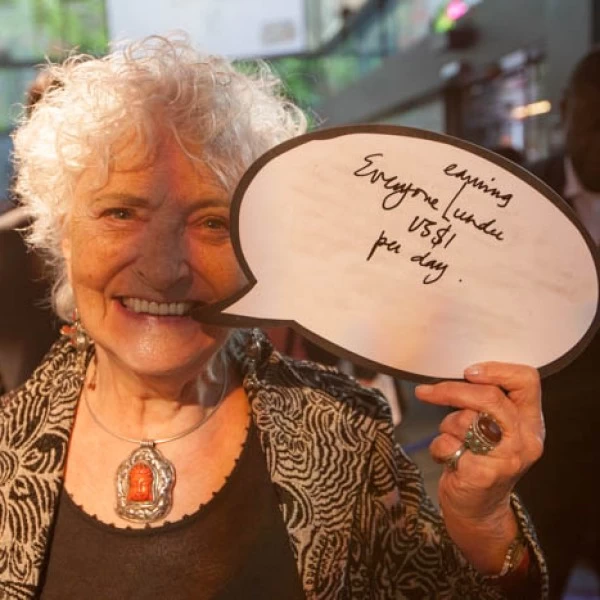 earning
Everyone under
US$1
per day.